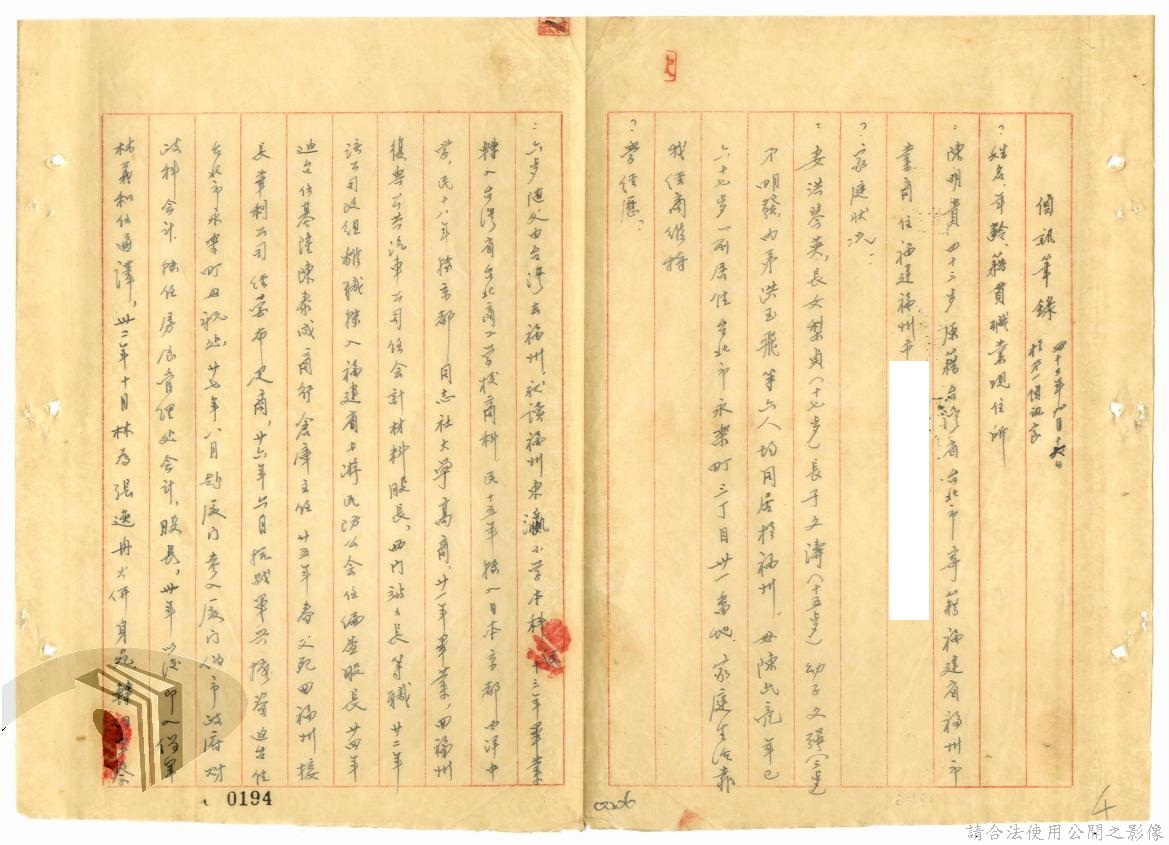 偵訊筆錄 四十二年 月十 日
於本 偵訊室
？姓名、年齡、籍貫職業現住所
：陳明貴 四十三歲 原籍台灣省台北市 寄籍福建省福州市
業商 住福建福州市
？家庭狀況：
：妻洪琴英，長女梨貞（十七歲）長子文濤（十五歲）幼子文強
不明發內弟洪玉飛等六人均同居於福州，母陳氏亮年已
六十七歲一形居住台北市永樂町三丁目卅一番地 家庭生活靠
我經商維持
？學經歷？
：六歲隨父由台灣去福州，就讀福州東瀛小学本科民十三年畢業
轉入台灣省台北商工学校商科 民十五年轉入日本京都西洋中
学，民十八年轉京都同志社大學高商，廿一年畢業，回福州
復興公共汽車公司任會計材料股長，西門站々長等職 廿二年
該公司改組離職轉入福建省上游民防公會任偏查股長 廿四年
迪台任基隆陳泰成商行倉庫主任 廿五年春父死回福州接
長華利公司經營布疋商，廿六年六月抗戰軍興擠眷迪台住
台北市永樂町 廿七年八月赴廈門考入廈門偽市政府財
政科會計 轉任房屋管理處會計，股長，卅年 以後即入偽軍
林義和任通譯，卅二年十月林為張逸舟火併身死轉
0194
0206
4
請合法使用公開之影像